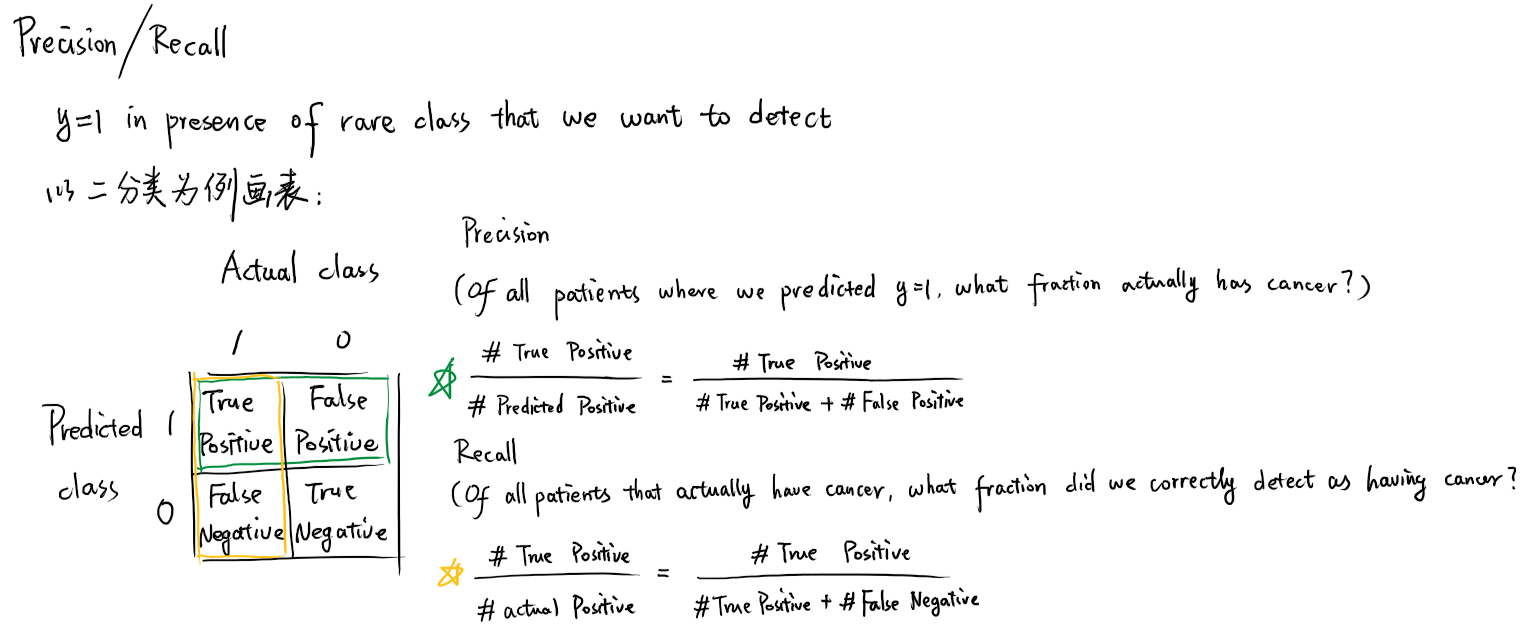 Precision/Recall
y=1 in presence of rare class that we want to detect
以二分类为例画表：
Actual class
1 0
Predicted class
1 True Positive False Positive
0 False Negative True Negative
Precision
(Of all patients where we predicted y=1, what fraction actually has cancer?)
# True Positive
# Predicted Positive
=
# True Positive
# True Positive + # False Positive
Recall
(Of all patients that actually have cancer, what fraction did we correctly detect as having cancer?
# True Positive
# actual Positive
=
# True Positive
# True Positive + # False Negative